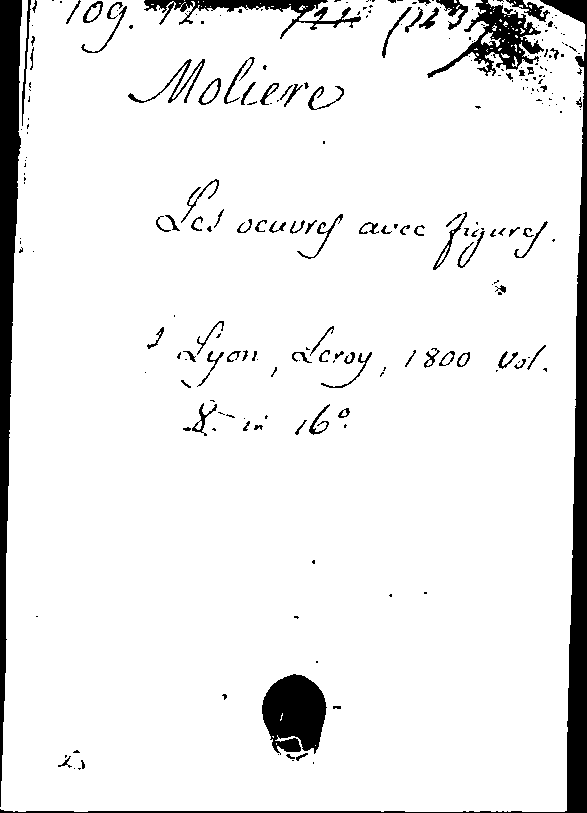 109. 12.
Moliere
Les oeuvres avec figures.
Lyon, Leroy, 1800 Vol.
8. in 16º.